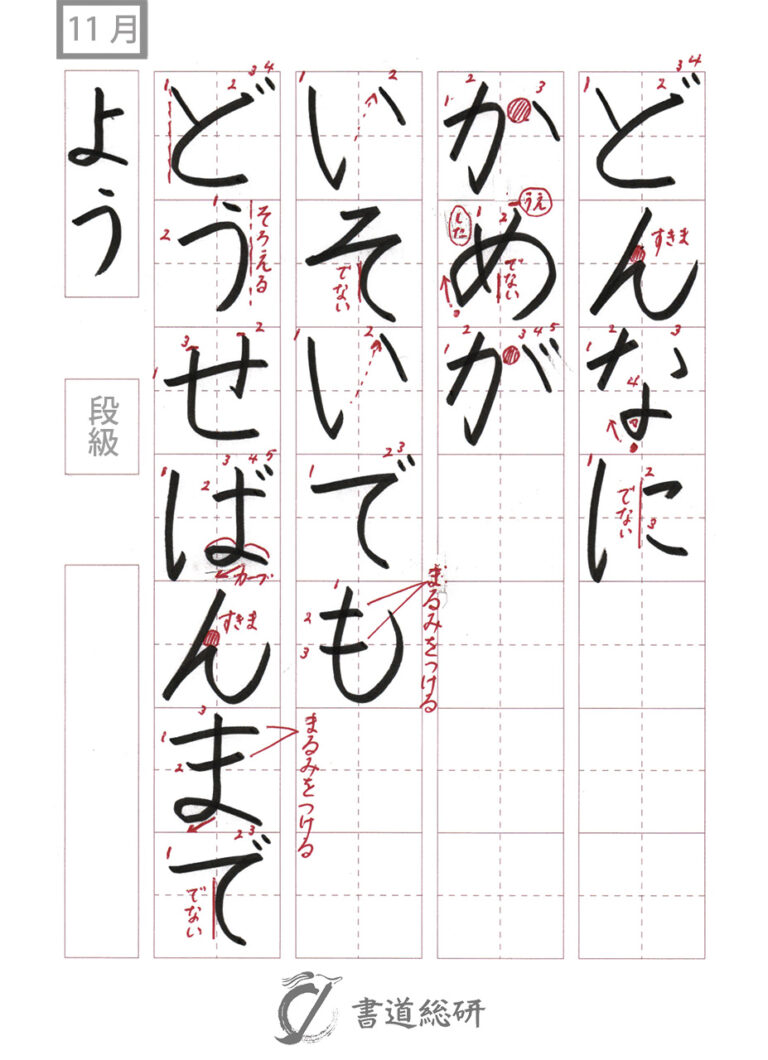 11月
どんなに
かめが
いそいでも
どうせばんまで
よう
段級
すきま
でない
うえ
した
でない
まるみをつける
でない
まるみをつける
そろえる
カーブ
すきま
でない
書道総研